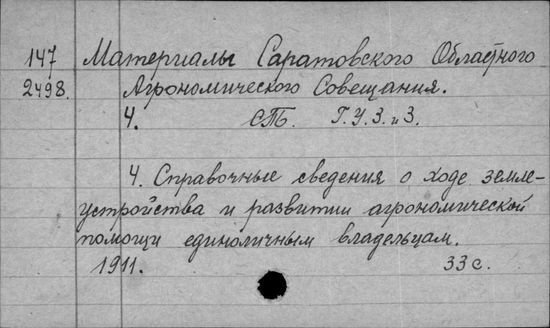 147 Материалы Саратовского Областного
2498. Агрономического Совещания.
4. СПБ. Г.У.З. и З.
4. Справочные сведения о ходе земле-
устройства и развитии агрономической
помощи единоличным владельцам.
1911. 33 с.